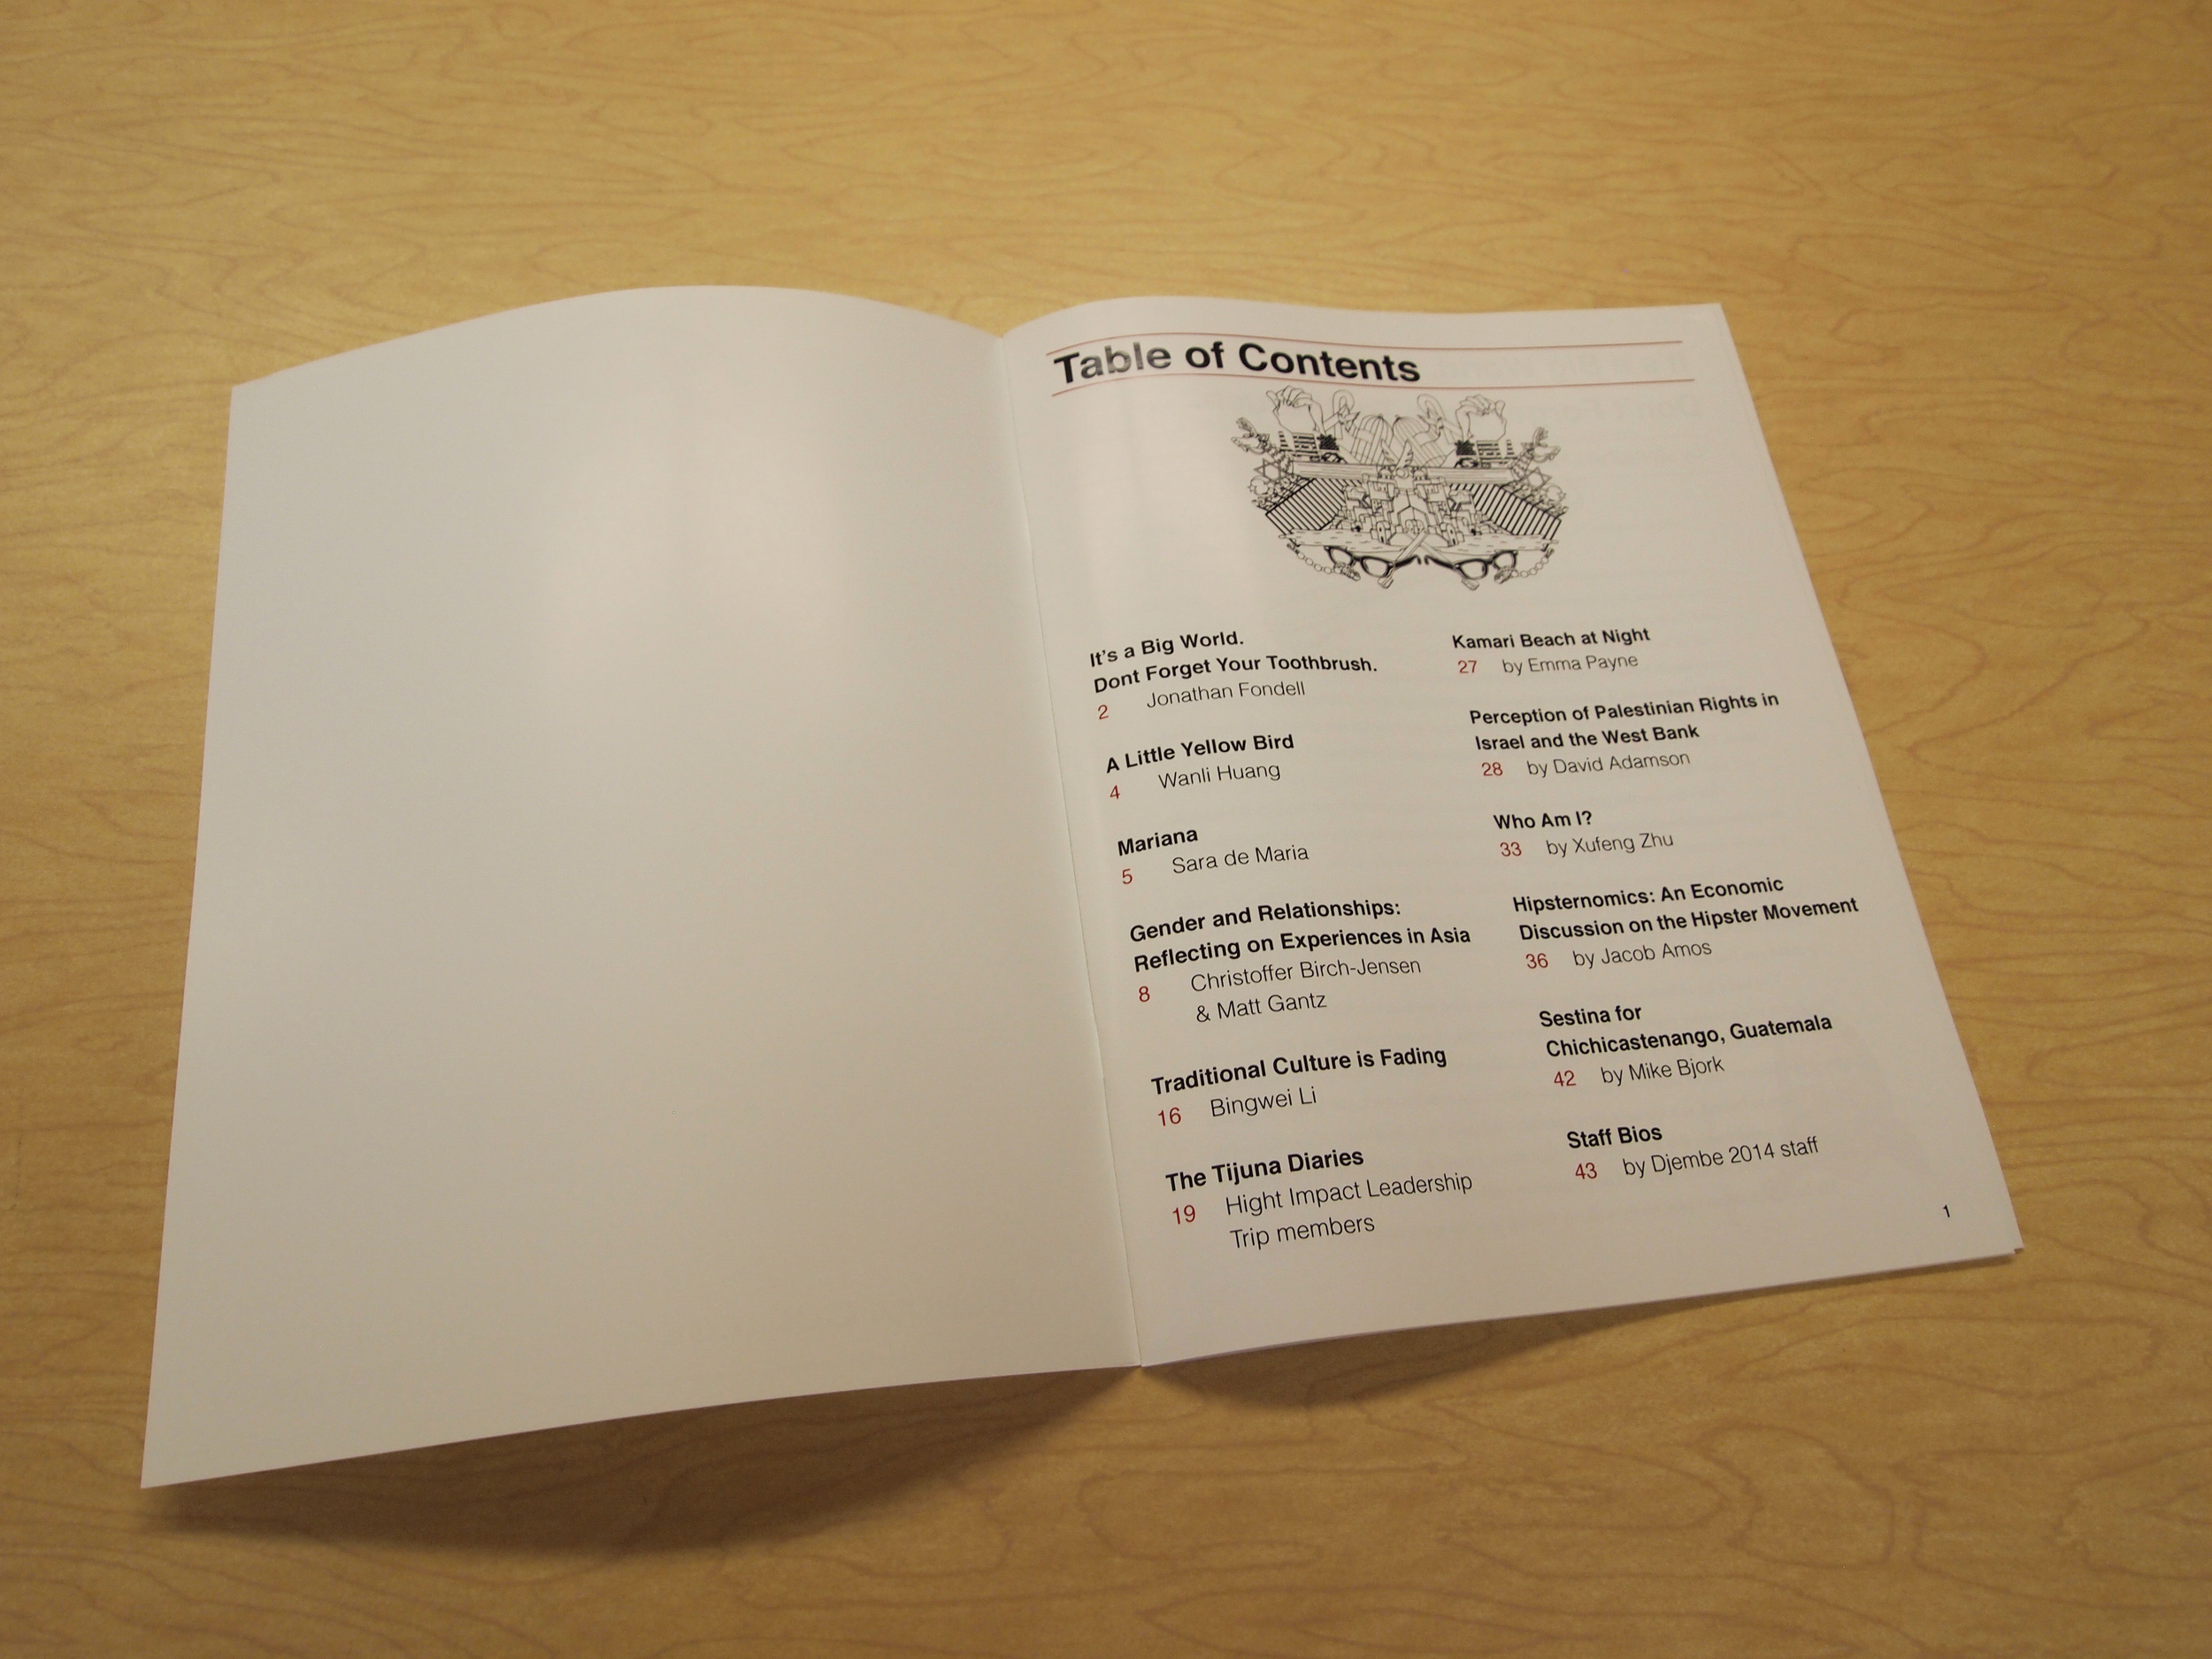 Table of Contents
It's a Big World.
Dont Forget Your Toothbrush.
2 Jonathan Fondell
A Little Yellow Bird
4 Wanli Huang
Mariana
5 Sara de Maria
Gender and Relationships:
Reflecting on Experiences in Asia
8 Christoffer Birch-Jensen
& Matt Gantz
Traditional Culture is Fading
16 Bingwei Li
The Tijuna Diaries
19 Hight Impact Leadership
Trip members
Kamari Beach at Night
27 by Emma Payne
Perception of Palestinian Rights in
Israel and the West Bank
28 by David Adamson
Who Am I?
33 by Xufeng Zhu
Hipsternomics: An Economic
Discussion on the Hipster Movement
36 by Jacob Amos
Sestina for
Chichicastenango, Guatemala
42 by Mike Bjork
Staff Bios
43 by Djembe 2014 staff
1